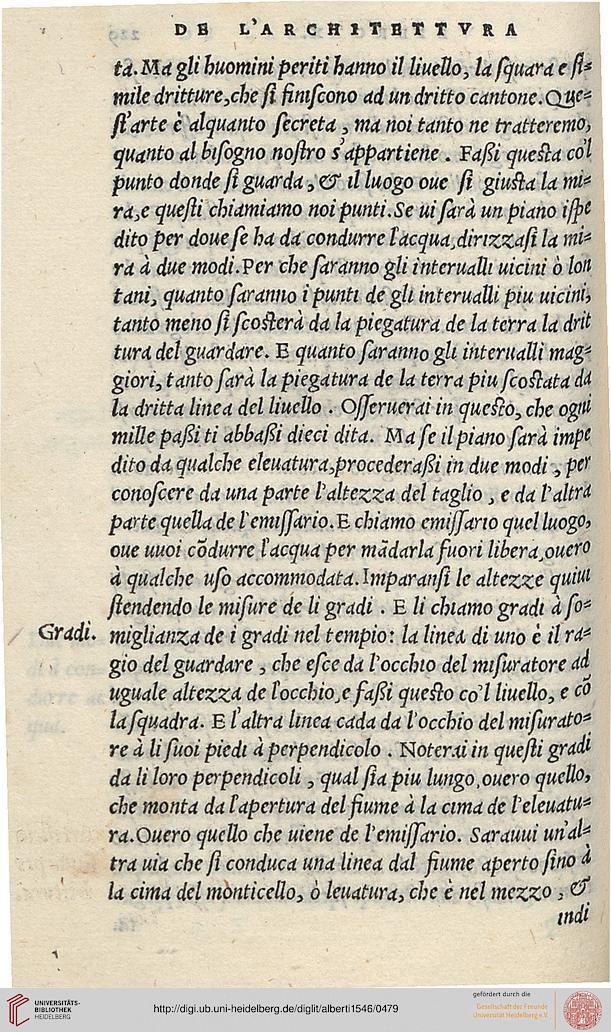 DE L'ARCHITETTVRA
ta. Ma gli huomini periti hanno il liuello, la ſquara e ſi=
mile dritture, che ſi finiſcono ad un dritto cantone. Que=
ſt'arte è alquanto ſecreta, ma noi tanto ne tratteremo,
quanto al biſogno noſtro s'appartiene. Faßi queſta co'l
punto donde ſi guarda, & il luogo oue ſi giuſta la mi=
ra, e queſti chiamiamo noi punti. Se ui ſarà un piano iſpe
dito per doue ſe ha da condurre l'acqua, dirizzaſi la mi=
ra à due modi. Per che ſaranno gli interualli uicini ò lon
tani, quanto ſaranno i punti de gli interualli piu uicini,
tanto meno ſi ſcoſterà da la piegatura de la terra la drit
tura del guardare. E quanto ſaranno gli interualli mag=
giori, tanto ſarà la piegatura de la terra piu ſcoſtata da
la dritta linea del liuello. Oſſeruerai in queſto, che ogni
mille paßi ti abbaßi dieci dita. Ma ſe il piano ſarà impe
dito da qualche eleuatura, procederaßi in due modi, per
conoſcere da una parte l'altezza del taglio, e da l'altra
parte quella de l'emiſſario. E chiamo emiſſario quel luogo,
oue uuoi cōdurre l'acqua per mādarla fuori libera, ouero
à qualche uſo accommodata. Imparanſi le altezze quiui
ſtendendo le miſure de li gradi. E li chiamo gradi à ſo=
Gradi. miglianza de i gradi nel tempio: la linea di uno è il ra=
gio del guardare, che eſce da l'occhio del miſuratore ad
uguale altezza de l'occhio, e faßi queſto co'l liuello, e cō
la ſquadra. E l'altra linea cada da l'occhio del miſurato=
re à li ſuoi piedi à perpendicolo. Noterai in queſti gradi
da li loro perpendicoli, qual ſia piu lungo, ouero quello,
che monta da l'apertura del fiume à la cima de l'eleuatu=
ra. Ouero quello che uiene de l'emiſſario. Sarauui un'al=
tra uia che ſi conduca una linea dal fiume aperto ſino à
la cima del monticello, ò leuatura, che è nel mezzo, &
indi
UNIVERSITÄTS-
BIBLIOTHEK
HEIDELBERG
http://digi.ub.uni-heidelberg.de/diglit/alberti1546/0479
gefördert durch die
Gesellschaft der Freunde
Universität Heidelberg e.V.